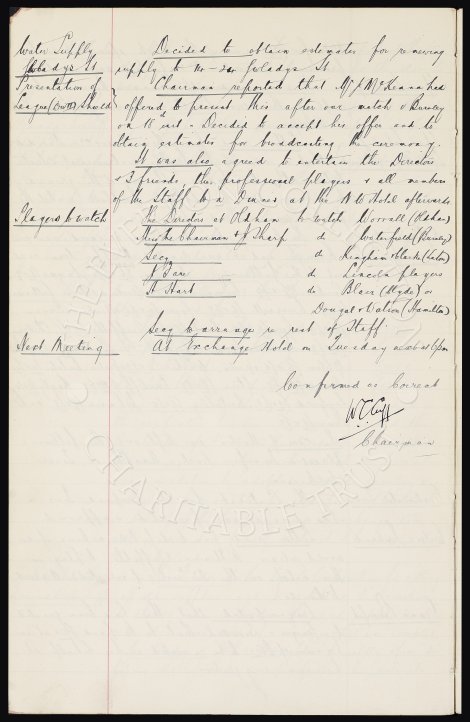 Water Supply Decided to obtain estimates for renewing
Gwladys St supply to Gwladys St
Presentation of Chairman reported that Mr J McKenna had
League (Div II) Shield offered to present this after our match v Burnley
on 18th inst. Decided to accept his offer and to
obtain estimates for broadcasting the ceremony.
It was also agreed to entertain the Directors
& friends, the professional players & all members
of the Staff to a Dinner at the Hotel afterwards
Players to watch The Directors at Oldham to watch Worrall (Oldham)
The Chairman & J Sharp do Waterfield (Burnley)
Secy do Kingham & (Luton)
J Fare do Lincoln players
H Hart do Blair (Hyde) or
Dougal & Watson (Hamilton)
Secy to arrange re rest of Staff.
Next Meeting At Exchange Hotel on Tuesday next at 6pm
Confirmed as Correct
W.C. Cuff
Chairman
THE EVERTON
CHARITABLE TRUST